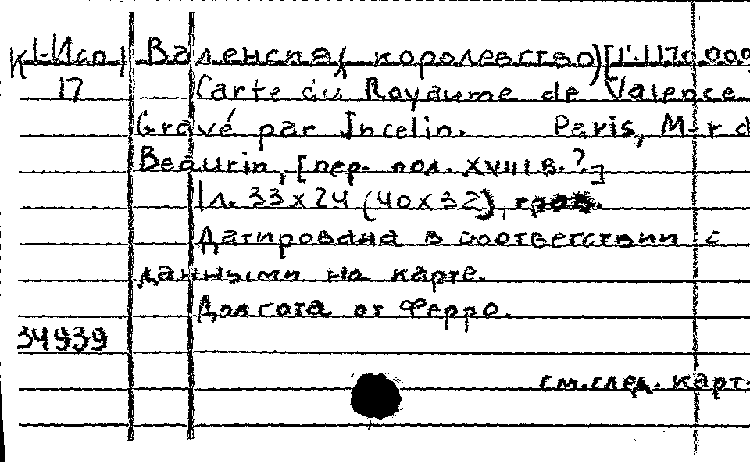 К1-Исп Валенсия (королевство) [1:1170.000
17 Carte du Royaume de Valence
Gravé par Incelin. Paris, M-r d
Beaurin, [пер. пол. XVIII в.?]
1 л. 33x24 (40x32), грав.
Датирована в соответствии с
данными на карте.
Долгота от Ферро.
34939
см.след. карт.